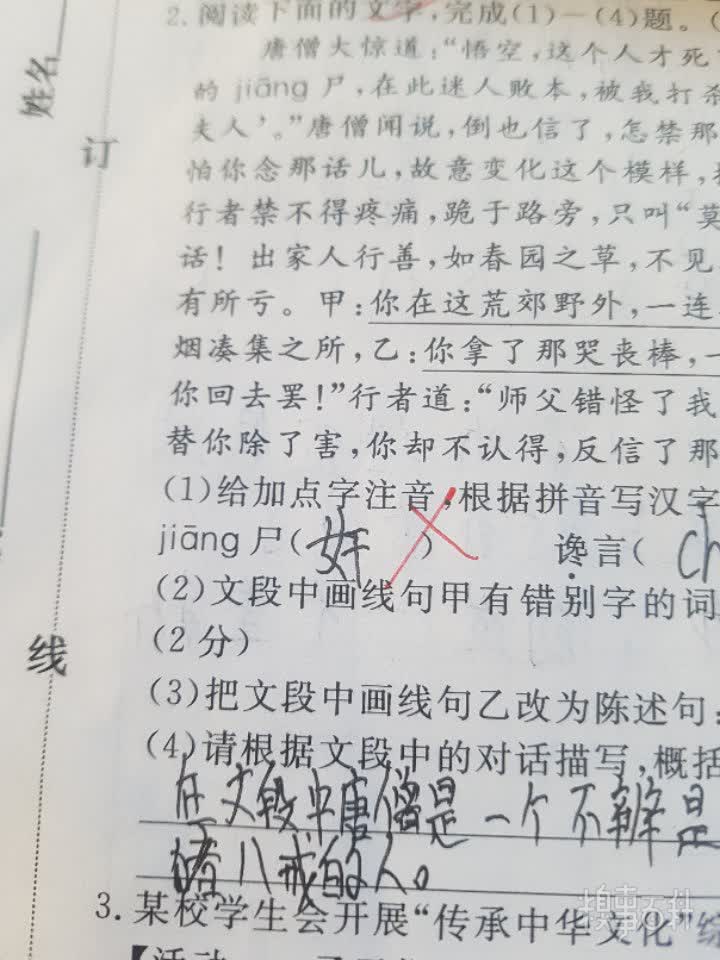 姓名
订
线
2. 阅读下面的文字,完成(1)-(4)题。(
唐僧大惊道:“悟空,这个人才死
的 jiāng 尸,在此迷人败本,被我打杀
夫人’。”唐僧闻说,倒也信了,怎禁那
怕你念那话儿,故意变化这个模样,
行者禁不得疼痛,跪于路旁,只叫“莫
话!出家人行善,如春园之草,不见
有所亏。甲:你在这荒郊野外,一连
烟凑集之所,乙:你拿了那哭丧棒,一
你回去罢!”行者道:“师父错怪了我
替你除了害,你却不认得,反信了那
(1)给加点字注音,根据拼音写汉字
jiāng 尸(奸) 谗言(ch
(2)文段中画线句甲有错别字的词
(2分)
(3)把文段中画线句乙改为陈述句:
(4)请根据文段中的对话描写,概括
在文段中唐僧是一个不辨是
猪八戒的人。
3. 某校学生会开展“传承中华文化”综
【活动一